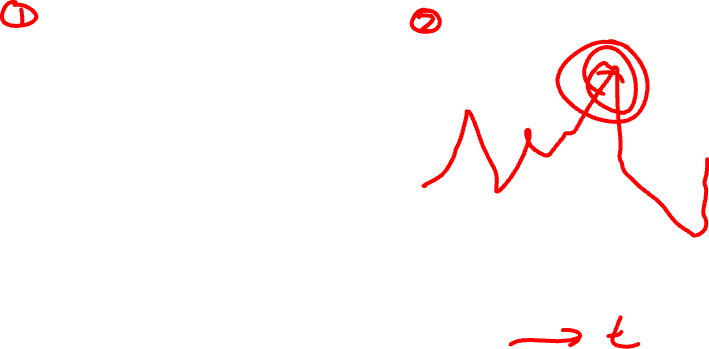 ① ②
→ t